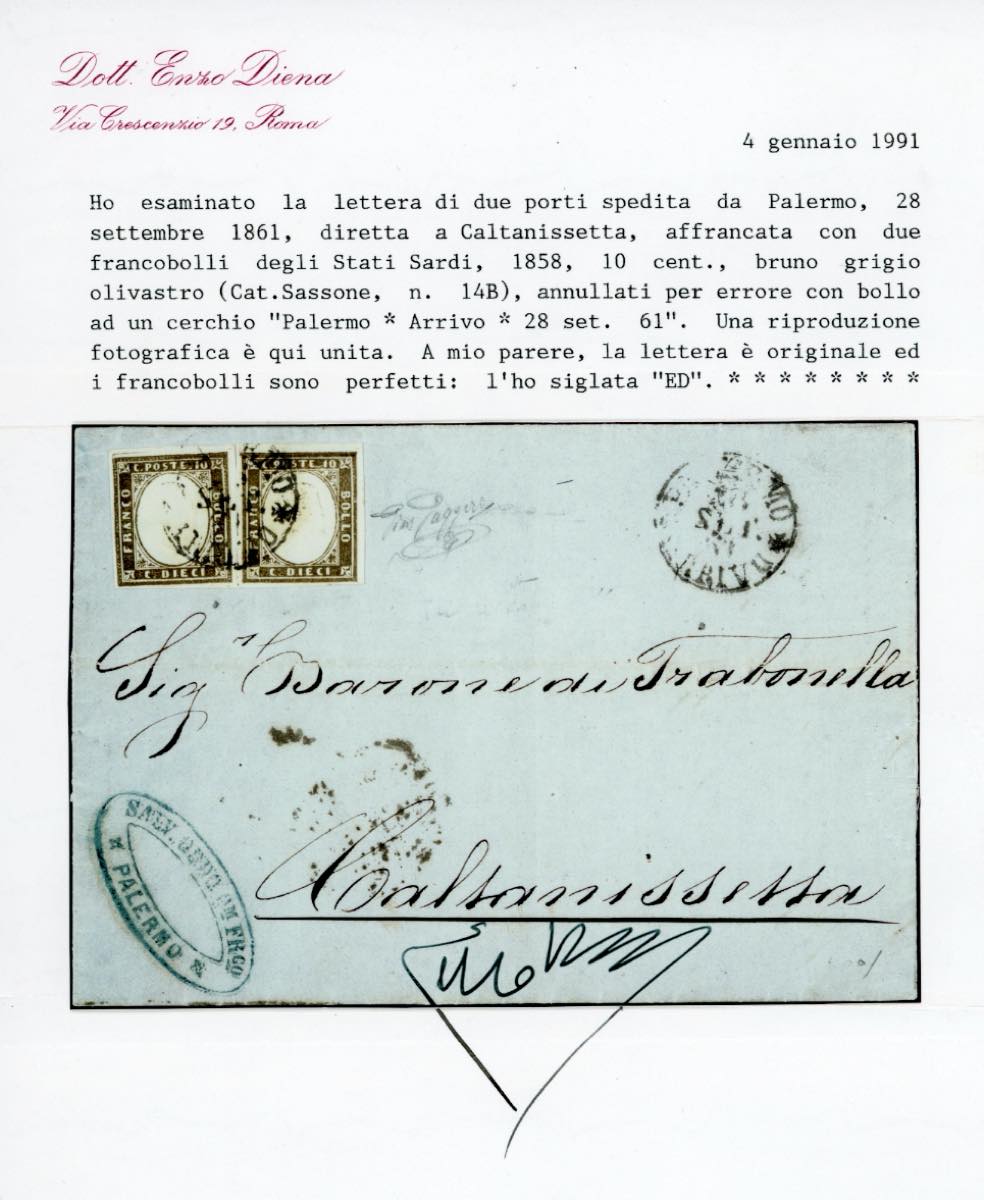 Dott. Enzo Diena
Via Crescenzio 19, Roma
4 gennaio 1991
Ho esaminato la lettera di due porti spedita da Palermo, 28
settembre 1861, diretta a Caltanissetta, affrancata con due
francobolli degli Stati Sardi, 1858, 10 cent., bruno grigio
olivastro (Cat.Sassone, n. 14B), annullati per errore con bollo
ad un cerchio "Palermo * Arrivo * 28 set. 61". Una riproduzione
fotografica è qui unita. A mio parere, la lettera è originale ed
i francobolli sono perfetti: l'ho siglata "ED". * * * * * * * *
C. POSTE. 10
FRANCO
BOLLO
C. DIECI
C. POSTE. 10
FRANCO
BOLLO
C. DIECI
Sig.r Barone di Trabonella
Caltanissetta
PALERMO